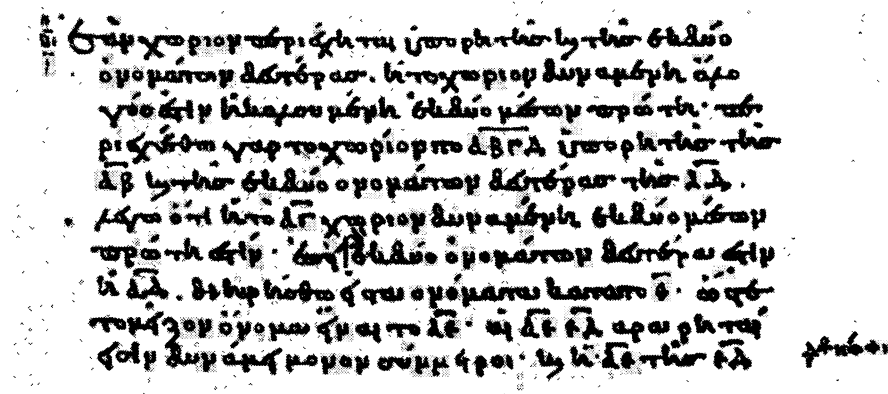 Ἐὰν χωρίον περιέχηται ὑπο ρητῆς καὶ τῆς ἐκ δύο
ὀνομάτων δευτέρας. ἡ το χωρίον δυναμένη ἄλο
γός ἐστιν ἡ καλουμένη ἐκ δύο μέσων πρώτη· πε
ριεχέσθω γαρ το χωρίον το ΑΒΓΔ ὑπο ρητῆς τῆς
ΑΒ καὶ τῆς ἐκ δύο ονομάτων δευτέρας τῆς ΑΔ.
λέγω ὅτι ἡ τὸ ΑΓ χωρίον δυναμένη ἐκ δύο μέσων
πρώτη ἐστίν· ἐπεὶ γὰρ ἐκ δύο ὀνομάτων δευτέρα ἐστὶν
ἡ ΑΔ. διῃρήσθω εἰς τα ονόματα κατα το Ε· ὥστε
το μεῖζον ὄνομα εἶναι το ΑΕ· αἱ ΑΕ ΕΔ αρα ρηταί
εἰσιν δυνάμει μονον σύμμετροι· καὶ ἡ ΑΕ τῆς ΕΔ